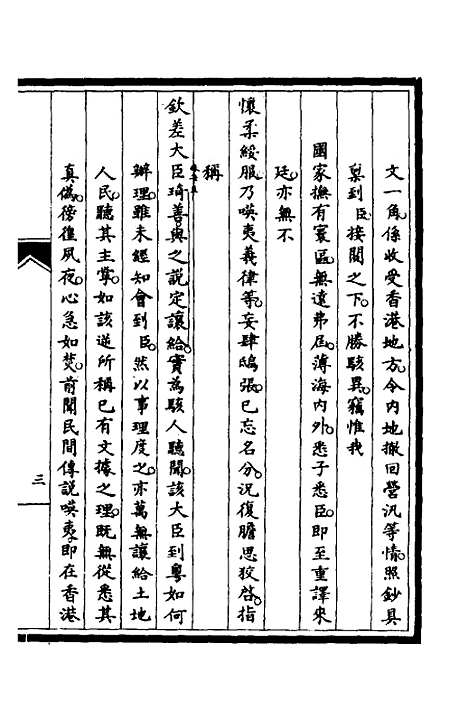 文一角係收受香港地方令内地撤回營汛等情照鈔具
稟到臣接閱之下不勝駭異竊惟我
國家撫有寰區無遠弗屆薄海内外悉子悉臣即至重譯來
廷亦無不
懷柔綏服乃嘆夷義律等妄肆鴟張已忘名分況復膽思狡啓指
稱
欽差大臣琦善與之説定讓給實為駭人聽聞該大臣到粵如何
辦理雖未經知會到臣然以事理度之亦萬無讓給土地
人民聽其主掌如該逆所稱已有文據之理既無從悉其
真偽徬徨夙夜心急如焚前聞民間傳説嘆夷即在香港
三